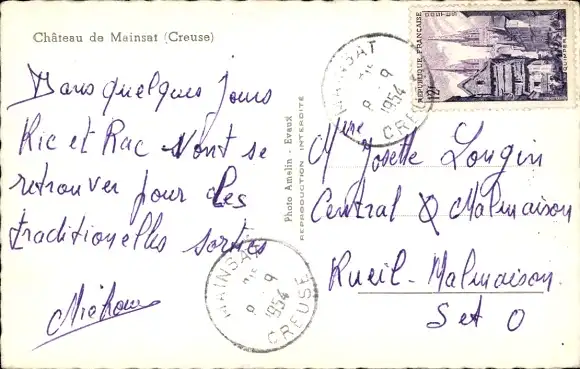 Château de Mainsat (Creuse)
Dans quelques jours
Ric et Rac vont se
retrouver pour des
traditionelles sorties
Photo Amelin - Evaux
REPRODUCTION INTERDITE
MAINSAT
9 - 9
1954
CREUSE
MAINSAT
9 - 9
1954
CREUSE
REPUBLIQUE FRANÇAISE
POSTES
QUIMPER
Mme Josette Longin
Central Malmaison
Rueil-Malmaison
S et O